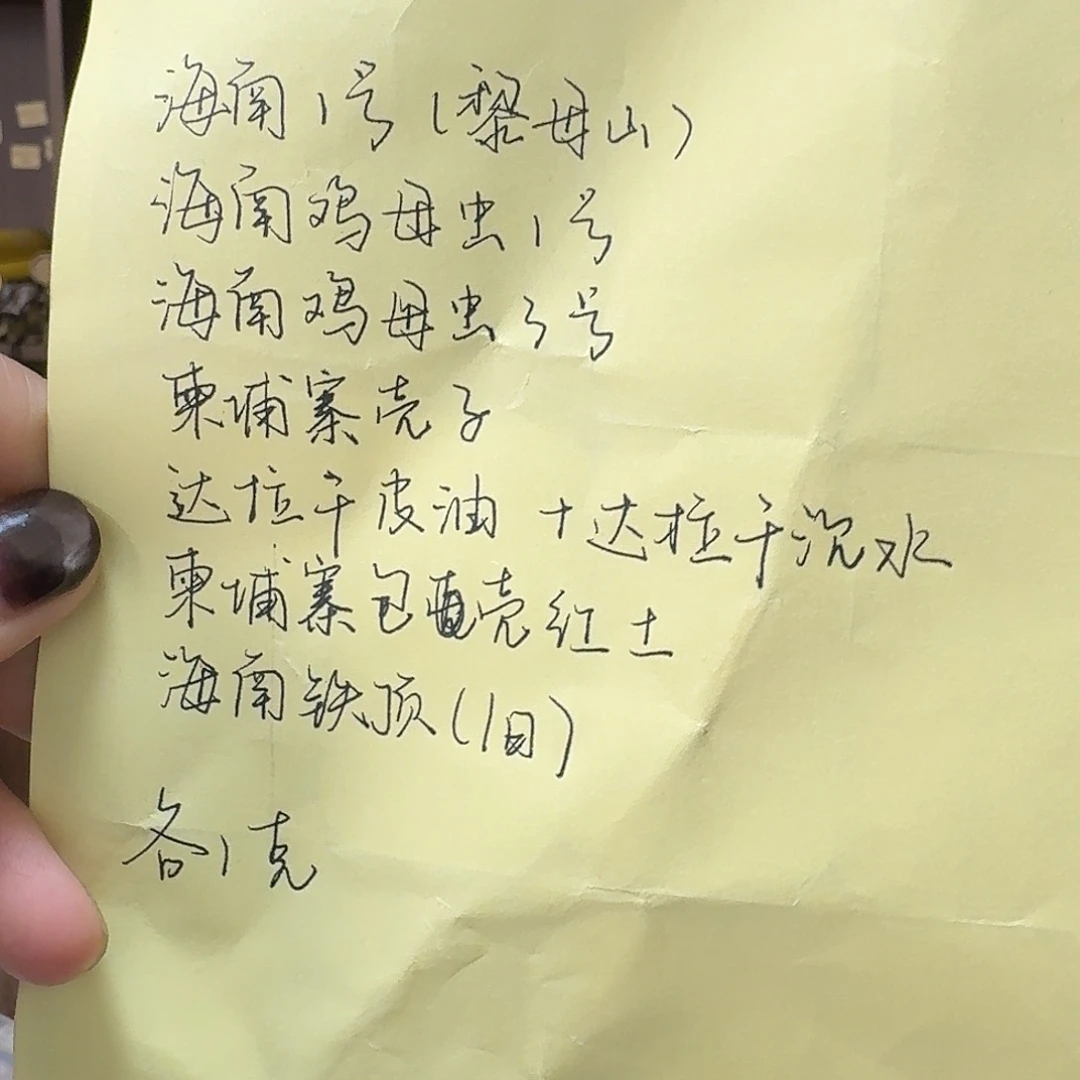 海南1号(黎母山)
海南鸡母虫1号
海南鸡母虫3号
柬埔寨壳子
达拉干皮油+达拉干沉水
柬埔寨包壳红土
海南铁顶(旧)
各1克